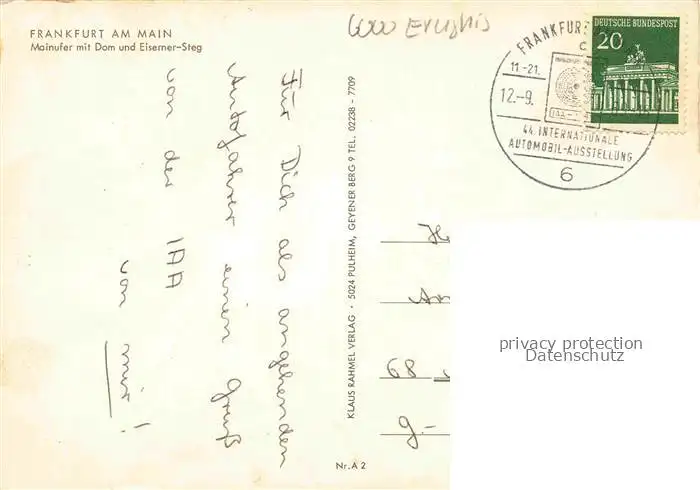 FRANKFURT AM MAIN
Mainufer mit Dom und Eiserner-Steg
Für Dich als angehenden
Autofahrer einen Gruß
von der IAA
von mir!
KLAUS RAHMEL VERLAG · 5024 PULHEIM, GEYENER BERG 9 TEL. 02238 - 7709
Nr. A 2
FRANKFURT
11.-21.
12.-9.
44. INTERNATIONALE
AUTOMOBIL-AUSSTELLUNG
6
DEUTSCHE BUNDESPOST
20
68
privacy protection
Datenschutz